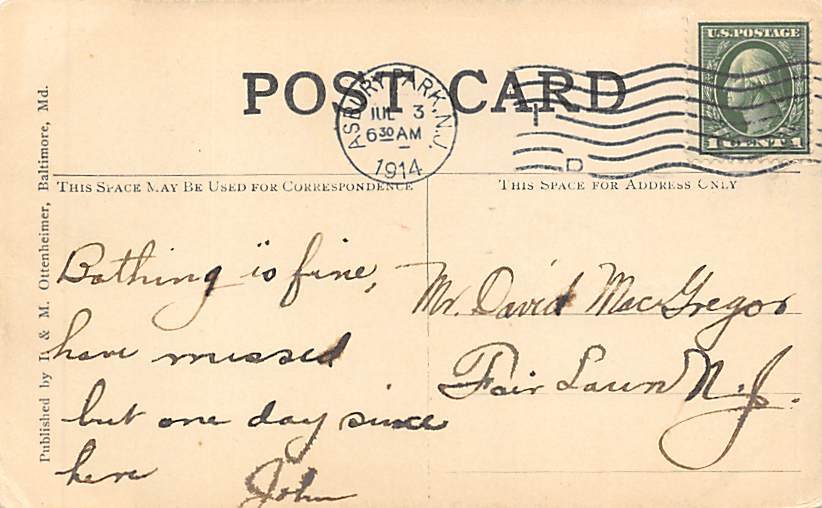 POST CARD
U.S. POSTAGE
1 CENT 1
ASBURY PARK, N.J.
JUL 3
6 30 AM
1914
T
D
THIS SPACE MAY BE USED FOR CORRESPONDENCE
THIS SPACE FOR ADDRESS ONLY
Published by I. & M. Ottenheimer, Baltimore, Md.
Bathing is fine,
have missed
but one day since
here
John
Mr. David MacGregor
Fair Lawn N.J.